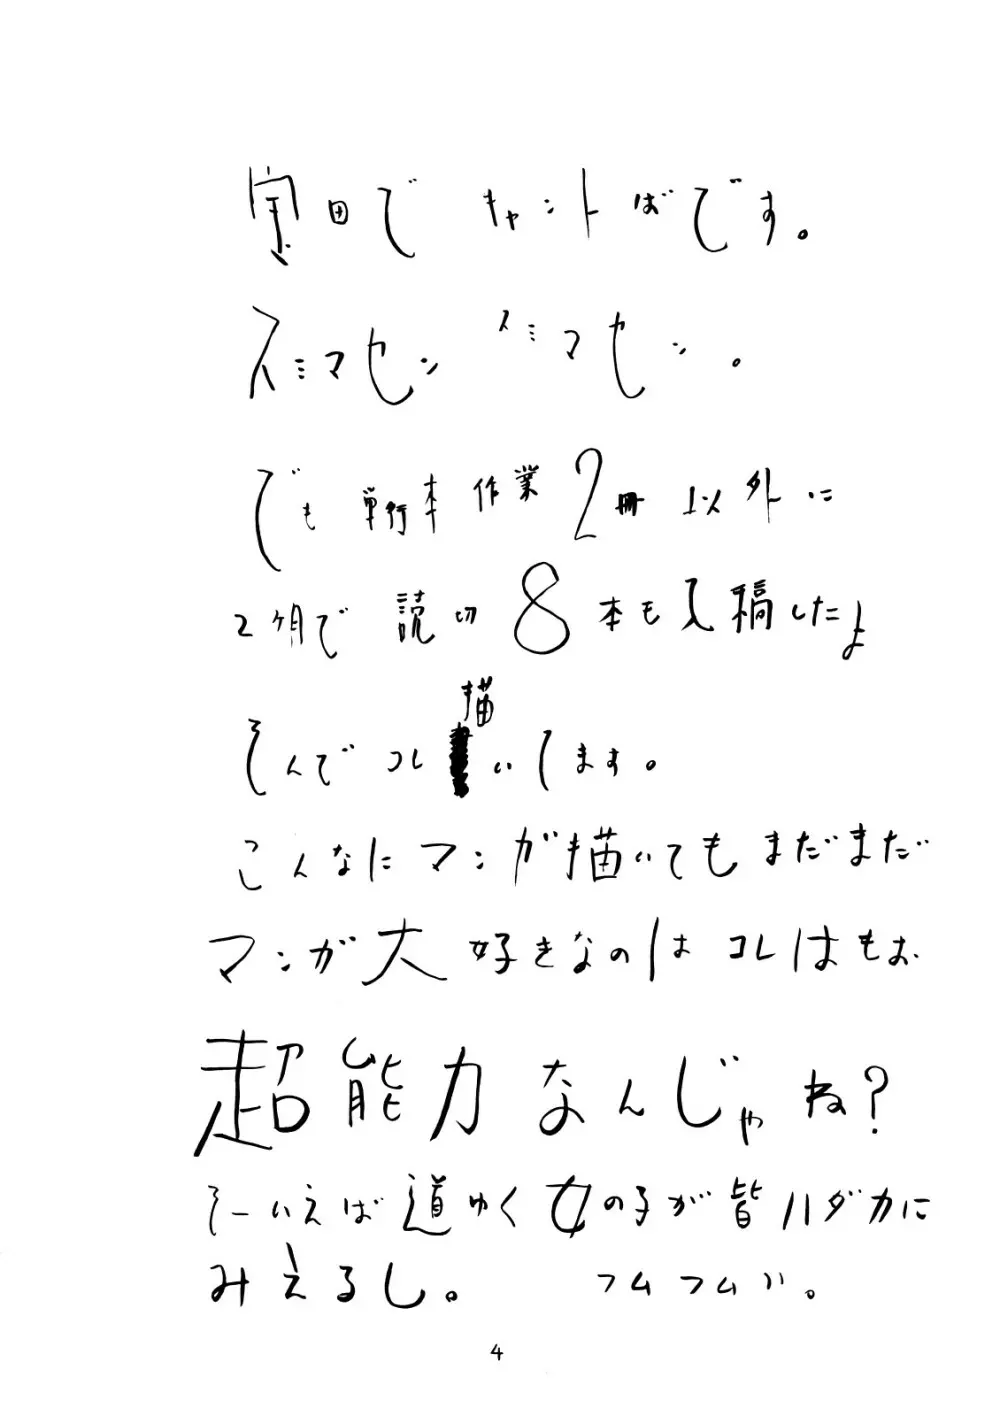 宝田で キャントばです。
スミマセン スミマセン。
でも 単行本 作業 2冊 以外に
2ヶ月で 読切 8本も入稿したよ
そんでコレ描いてます。
こんなにマンガ描いてもまだまだ
マンガ大好きなのはコレはもお
超能力なんじゃね?
そーいえば道ゆく女の子が皆ハダカに
みえるし。 フムフムハ。
4